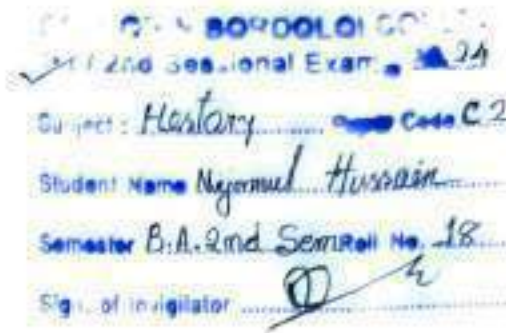 BORDOLOI
2nd Sessional Exam 24
Subject: Hestary Code C 2
Student Name Hussain
Semester B.A. 2nd Sem Roll No. 18
Sign. of invigilator